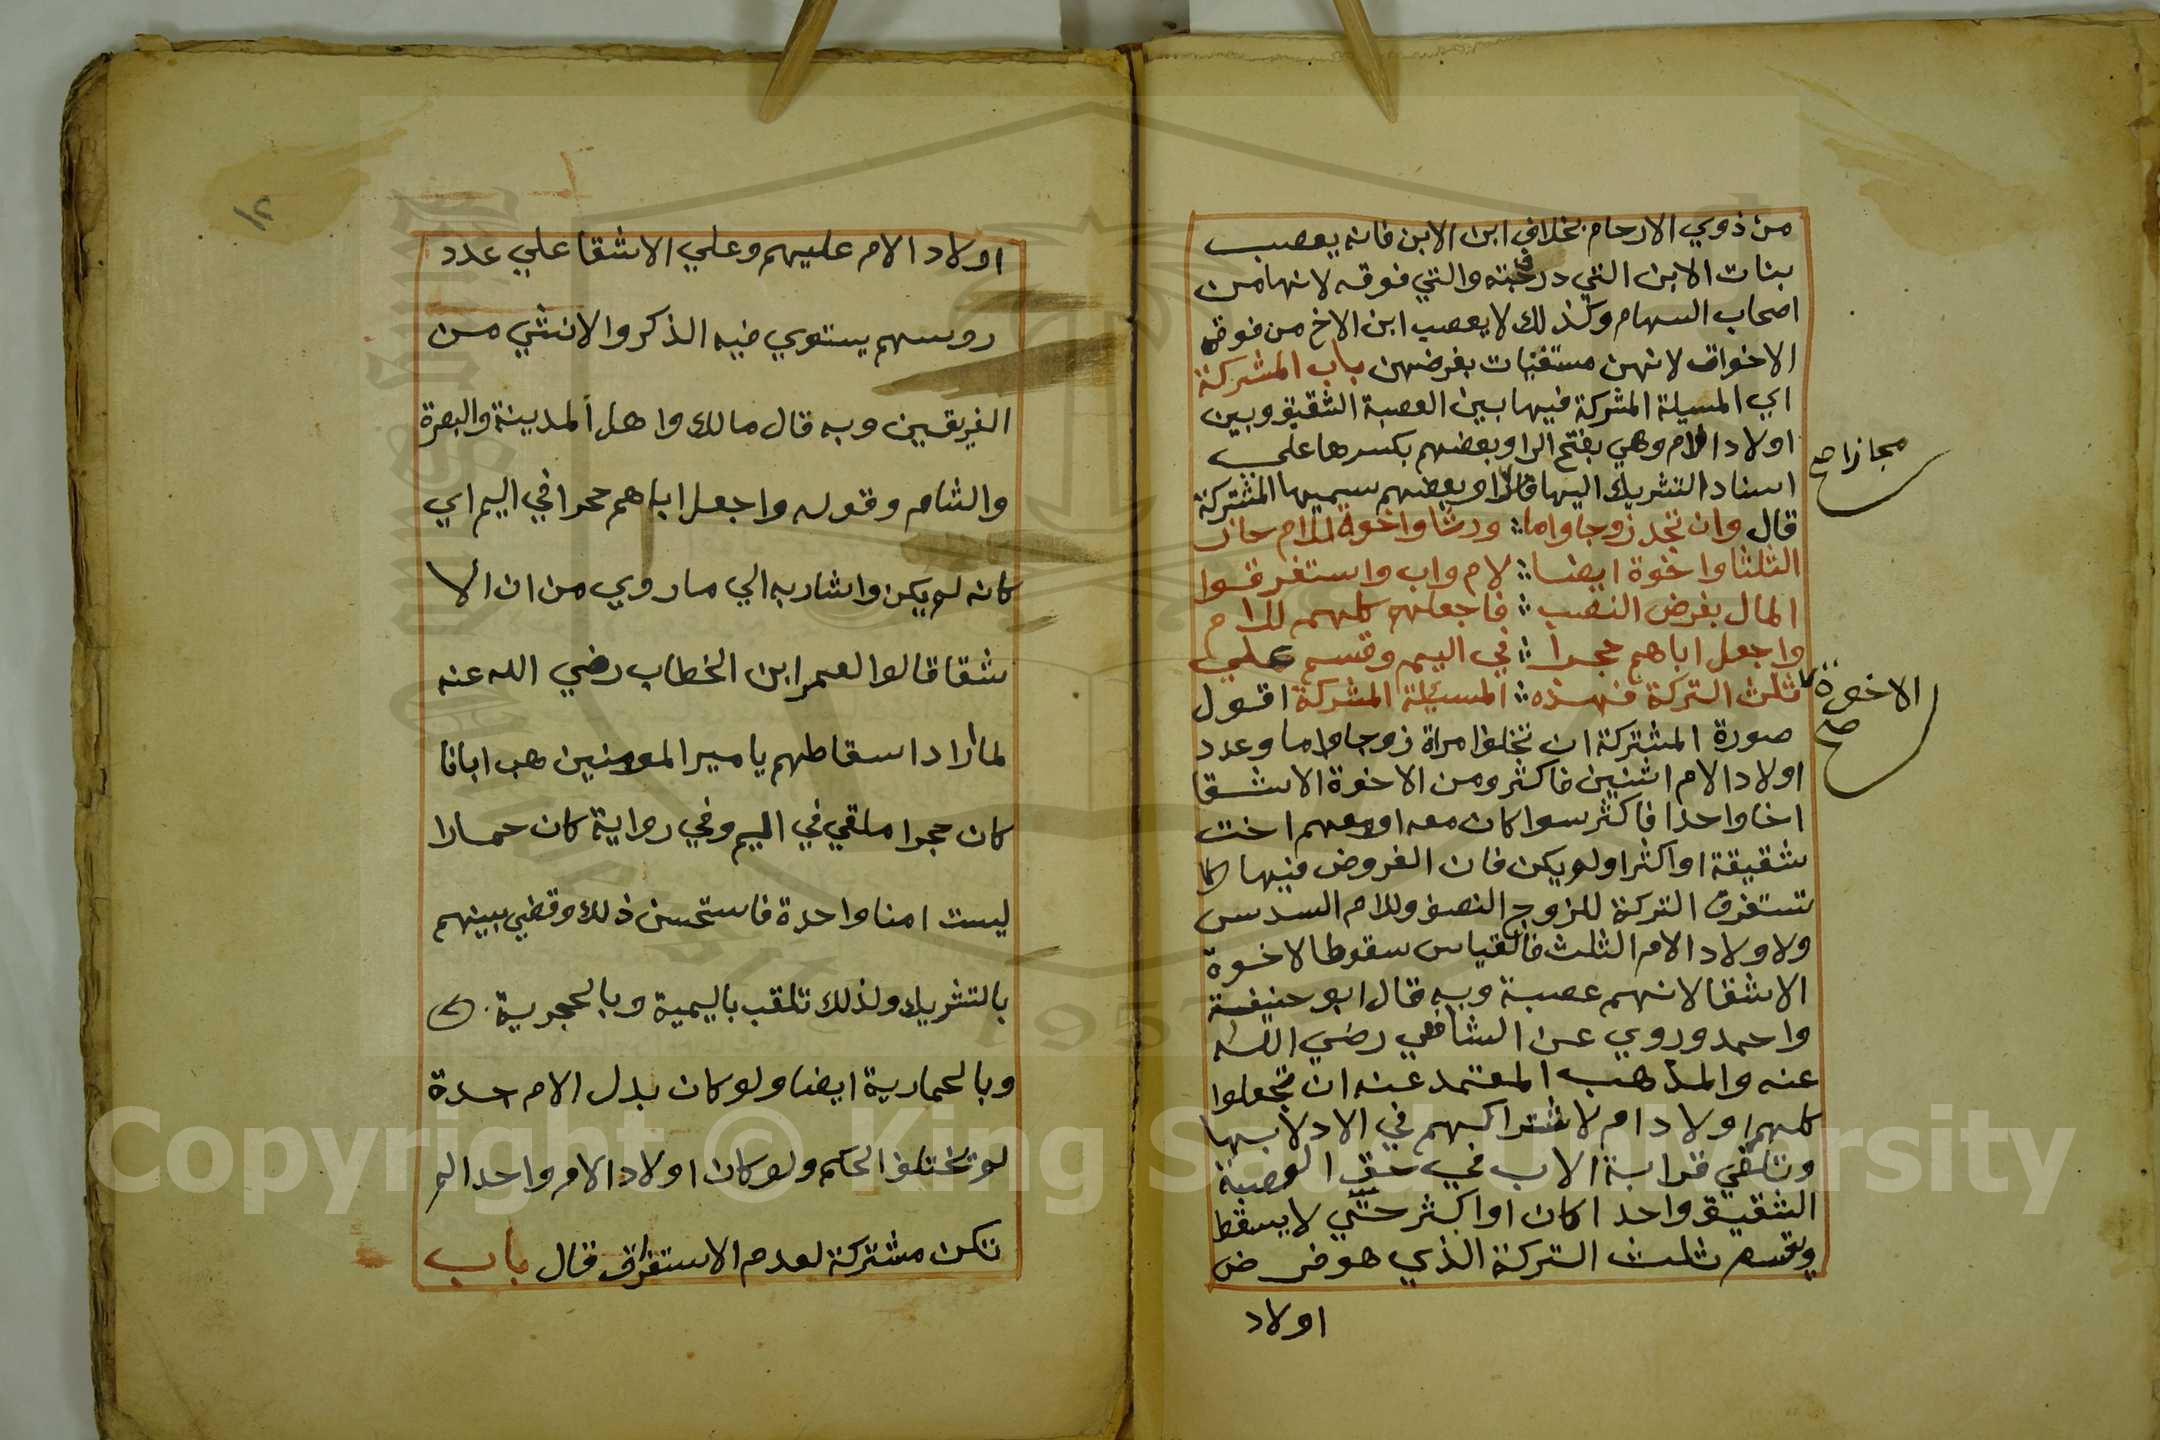 من ذوي الارحام بخلاف ابن الابن فانه يعصب
بنات الابن التي في درجته والتي فوقه لانها من
اصحاب السهام وكذلك لا يعصب ابن الاخ من فوقه
الاخوات لانهن مستغنيات بفرضهن باب المشركة
اي المسيلة المشركة فيها بين العصبة الشقيق وبين
اولاد الام وهي بفتح الرا وبعضهم بكسرها علي
اسناد التشريك اليها مجازا صح وبعضهم سميها المشتركة
قال وان تجد زوجا واما ورثا واخوة للام حازوا
الثلثا واخوة ايضا لام واب واستغرقوا
المال بفرض النصب فاجعلهم كلهم للام
واجعل اباهم حجرا في اليم وقسم علي
الاخوة صح
ثلث التركة فهذه المسيلة المشركة اقول
صورة المشتركة ان تخلف امراة زوجا واما وعدد
اولاد الام اثنين فاكثر ومن الاخوة الاشقا
اخا واحدا فاكثر سوا كان معه او معهم اخت
شقيقة او اكثر او لم يكن فان الفروض فيها
تستغرق التركة للزوج النصف وللام السدس
ولاولاد الام الثلث فالقياس سقوط الاخوة
الاشقا لانهم عصبة وبه قال ابو حنيفة
واحمد وروي عن الشافعي رضي الله
عنه والمذهب المعتمد عنه ان تجعلوا
كلهم اولاد ام لاشتراكهم في الادلا بها
وتلغي قرابة الاب في حق العصبة
الشقيق واحدا كان او اكثر حتي لا يسقط
ويقسم ثلث التركة الذي هو فرض
اولاد
١٢
اولاد الام عليهم وعلي الاشقا علي عدد
روسهم يستوي فيه الذكر والانثي من
الفريقين وبه قال مالك واهل المدينة والبصرة
والشام وقوله واجعل اباهم حجرا في اليم اي
كانه لم يكن واشار به الي ما روي من ان الا
شقا قالوا لعمر ابن الخطاب رضي الله عنه
لما اراد اسقاطهم يا امير المومنين هب ابانا
كان حجرا ملقي في اليم وفي رواية كان حمارا
ليست امنا واحدة فاستحسن ذلك وقضي بينهم
بالتشريك ولذلك تلقب باليمية وبالحجرية
وبالحمارية ايضا ولو كان بدل الام جدة
لم تختلف الحكم ولو كان اولاد الام واحدا لم
تكن مشتركة لعدم الاستغراق قال باب
Copyright © King Saud University
1957